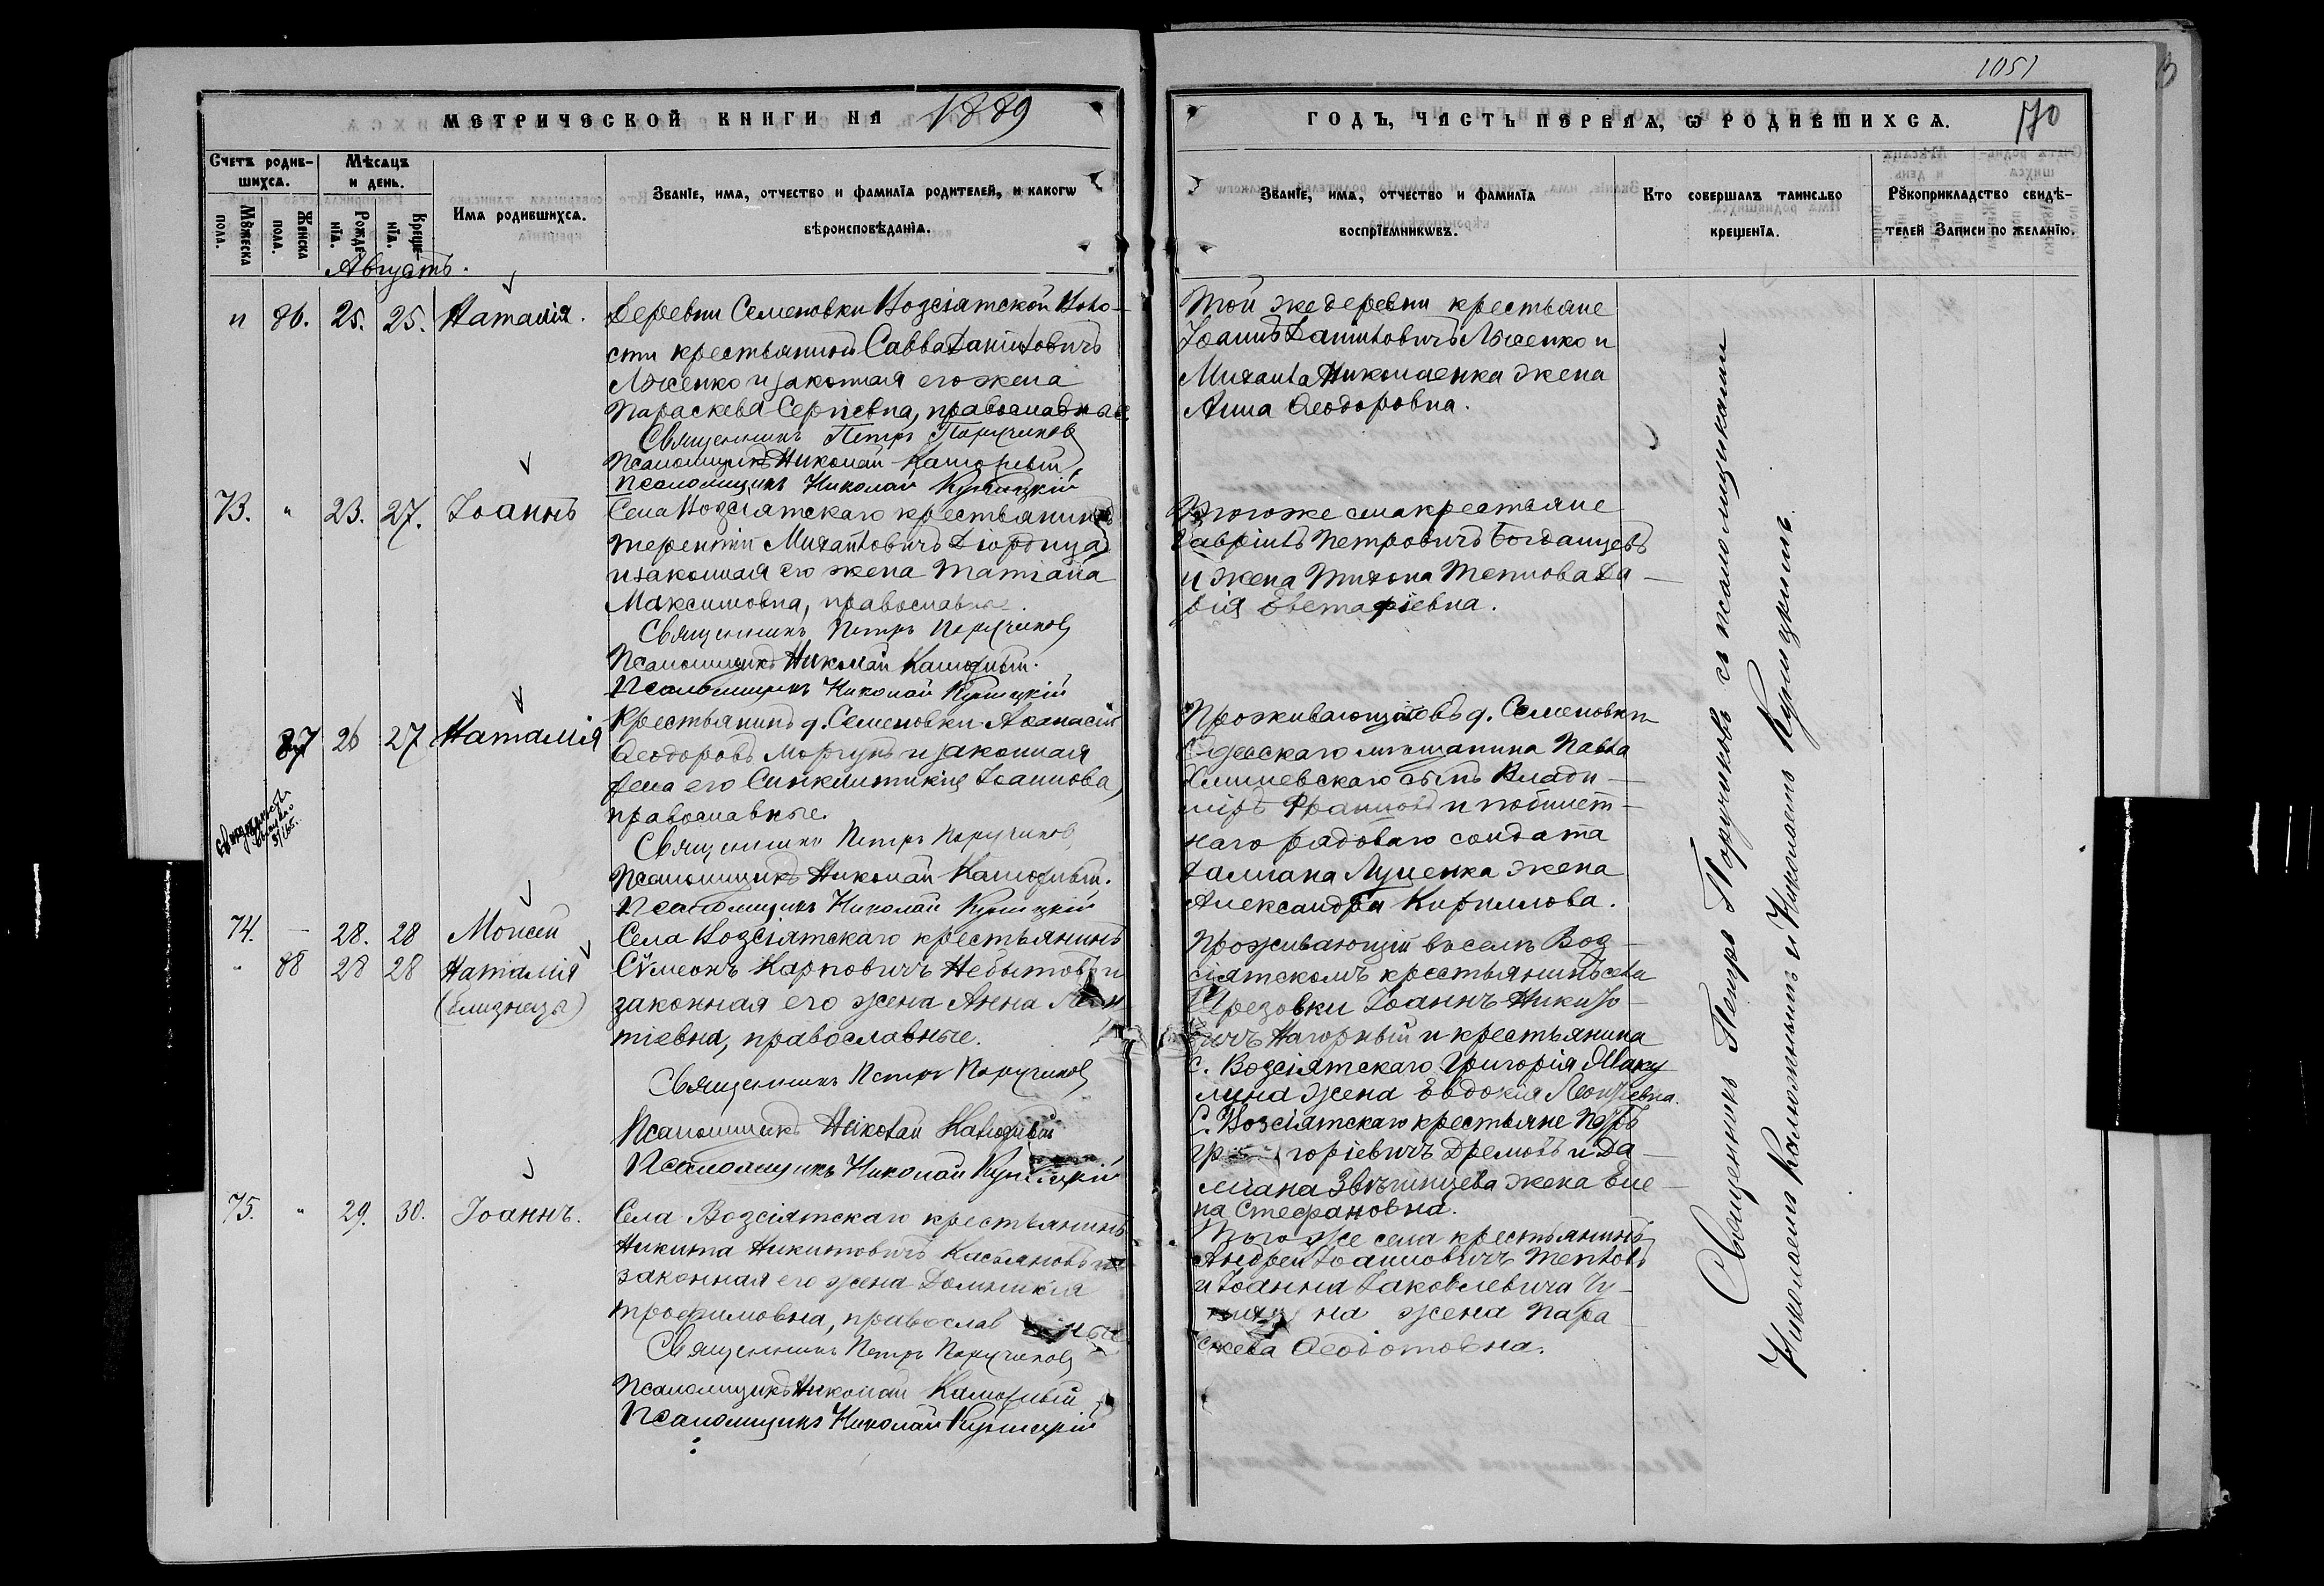 1051
МЕТРИЧЕСКОЙ КНИГИ НА 1889
ГОДЪ, ЧАСТЬ ПЕРВАѦ, Ѡ РОДИВШИХСѦ.
170
Счетъ родив-
шихсѧ.
Мѣсѧцъ
и день.
Мꙋжеска
пола.
Женска
пола.
Рожде-
нїѧ.
Креще-
нїѧ.
Имѧ родившихсѧ.
Званїе, имѧ, отчество и фамилїѧ родителей, и какогѡ
вѣроисповѣданїѧ.
Званїе, имѧ, отчество и фамилїѧ
воспрїемникѡвъ.
Кто совершалъ таинство
крещенїѧ.
Рꙋкоприкладство свидѣ-
телей Записи по желанїю.
Августъ.
" 86. 25. 25. Наталія.
Деревни Семеновки Возсіятской Воло-
сти крестьянинъ Савва Даніиловичъ
и законная его жена
Параскева Сергіевна, православные.
Священникъ Петръ Поручиковъ
Псаломщикъ Николай Калюжный
Псаломщикъ Николай Купицкій
Той же деревни крестьяне
Іоаннъ Даніиловичъ и
Михаила Николаенка жена
Анна Ѳеодоровна.
73. " 23. 27. Іоаннъ
Села Возсіятскаго крестьянинъ
Терентій Михайловичъ Діордица
и законная его жена Татіана
Максимовна, православные.
Священникъ Петръ Поручиковъ
Псаломщикъ Николай Калюжный.
Псаломщикъ Николай Купицкій
Того же села крестьяне
Гавріилъ Петровичъ Богданцевъ
и жена Тихона Теплова Да-
рія Евстафіевна.
87 26 27 Наталія
Крестьянинъ д. Семеновки Аѳанасій
Ѳеодоровъ Моргунъ и законная
жена его Синклитикія Іоаннова,
православные.
Священникъ Петръ Поручиковъ
Псаломщикъ Николай Калюжный.
Псаломщикъ Николай Купицкій
Проживающіе въ д. Семеновки
Одесскаго мѣщанина Павла
сынъ Влади-
міръ и побилет-
наго рядоваго солдата
Даміана Луценка жена
Александра Кириллова.
74. — 28. 28 Моисей
" 88 28 28 Наталія
(близнецы)
Села Возсіятскаго крестьянинъ
Сѵмеонъ Карповичъ Небытовъ и
законная его жена Анна Леон
тіевна, православные.
Священникъ Петръ Поручиковъ
Псаломщикъ Николай Калюжный
Псаломщикъ Николай Купицкій
Проживающій въ селѣ Воз-
сіятскомъ крестьянинъ села
Іоаннъ Никито-
вичъ Нагорный и крестьянина
с. Возсіятскаго Григорія Маку
лина жена Евдокія Леонтіевна.
С. Возсіятскаго крестьяне Петръ
Гр горіевичъ Дремовъ и Да-
міана Звѣгинцева жена Еле-
на Стефановна.
75. " 29. 30. Іоаннъ.
Села Возсіятскаго крестьянинъ
Никита Никитовичъ Касьяновъ и
законная его жена Домникія
Трофимовна, православ ные
Священникъ Петръ Поручиковъ
Псаломщикъ Николай Калюжный
Псаломщикъ Николай Купицкій
Того же села крестьянинъ
Андрей Іоанновичъ Тепловъ
и Іоанна Іаковлевича
на жена Пара
скева Ѳеодотовна.
Священникъ Петръ Поручиковъ съ псаломщиками
Николаемъ Калюжнымъ и Николаемъ Купицкимъ.